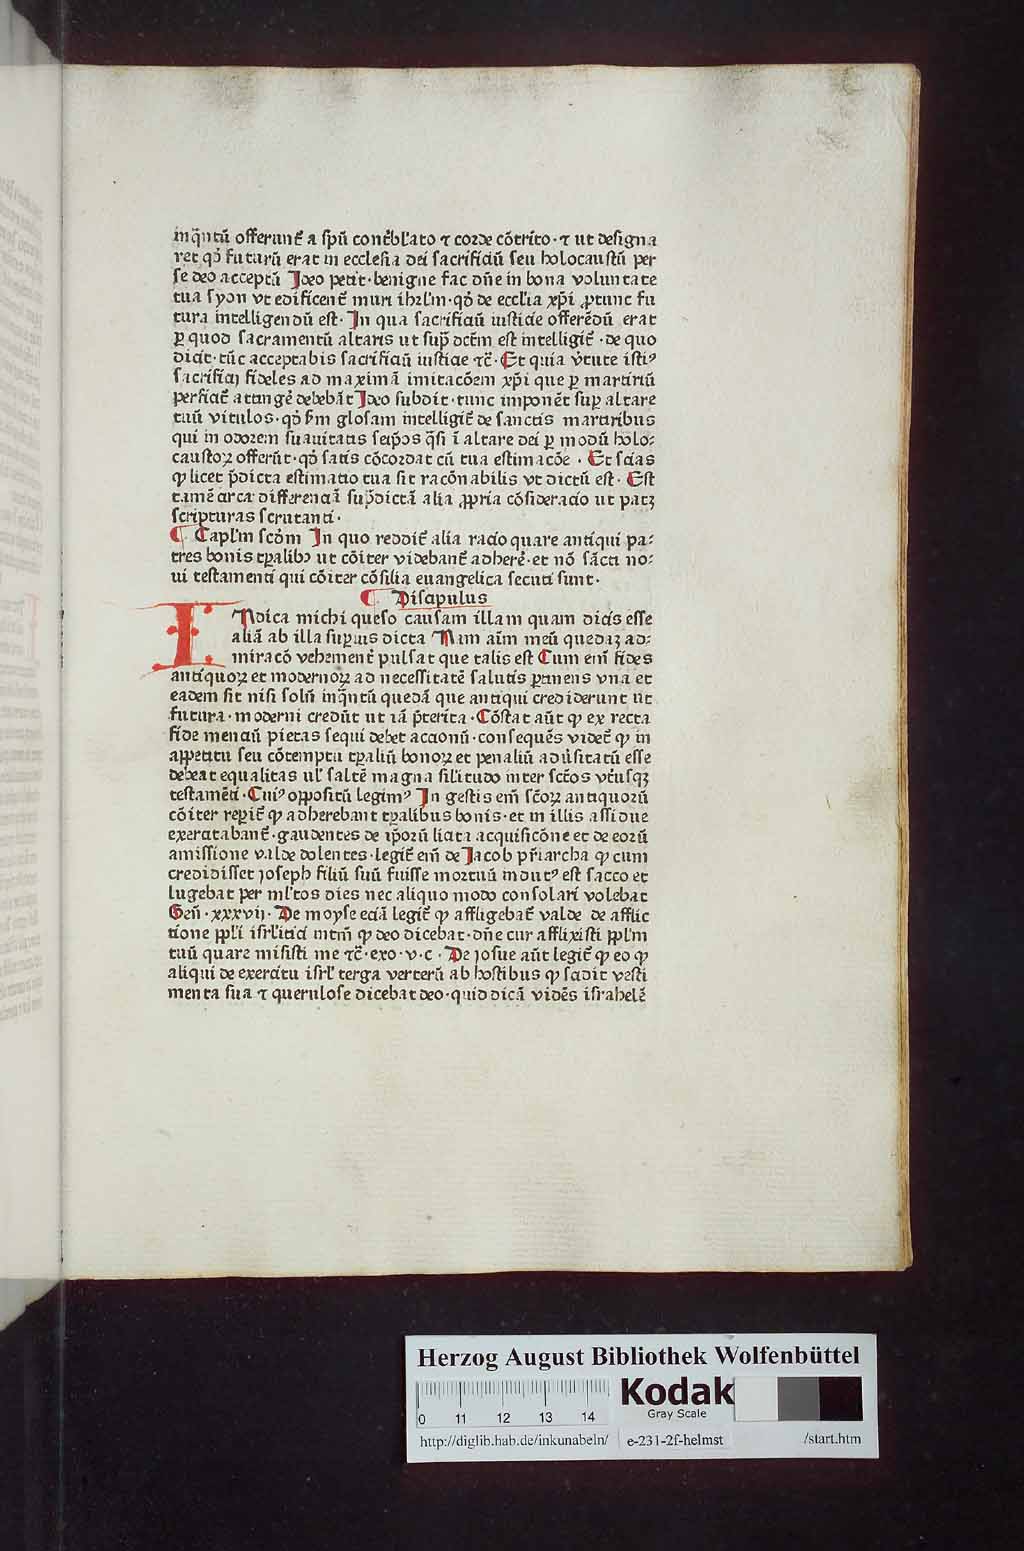 inq̄ntū offerunt᷑ a spū contͥbl'ato ⁊ corde cōtrito · ⁊ ut designa
ret qđ futurū erat in ecclesia dei sacrificiū seu holocaustū per
se deo acceptū Ideo petit · benigne fac dn̄e in bona voluntate
tua syon vt edificent᷑ muri ihrl'm · qđ de eccl'ia xp̄i ꝓtunc fu
tura intelligendū est · In qua sacrificiū iusticie offerēdū erat
ꝑ quod sacramentū altaris ut sup̄ dc̄tm est intelligit᷑ · de quo
dicit · tūc acceptabis sacrificiū iusticie ⁊c̄ · Et quia v̓tute istiꝰ
sacrificij fideles ad maximā imitacōem xp̄i que ꝑ martiriū
perficit᷑ attinge᷑ debebāt Ideo subdit · tunc imponēt suꝑ altare
tuū vitulos · qđ s̄m glosam intelligit᷑ de sanctis martiribus
qui in odorem suauitatis seip̄os q̄si ī altare dei ꝑ modū holo⸗
caustoꝝ offerūt · qđ satis cōcordat cū tua estimacōe · Et scias
ꝙ licet p̄dicta estimatio tua sit racōnabilis vt dictū est · Est
tamē circa differenciā sup̄dictā alia ꝓpria cōsideracio ut patꝫ
scripturas scrutanti ·
¶ Capl'm scd̄m In quo reddit᷑ alia racio quare antiqui pa⸗
tres bonis tꝑalibꝫ ut cōiter videbant᷑ adhere᷑ · et nō sāti no⸗
ui testamenti qui cōiter cōsilia euangelica secuti sunt ·
¶ Discipulus
INdica michi queso causam illam quam dicis esse
aliā ab illa suꝑius dicta Nam aīm meū quedaꝫ ad⸗
miracō vehement᷑ pulsat que talis est Cum em̄ fides
antiquoꝝ et modernoꝝ ad necessitatē salutis ꝑtinens vna et
eadem sit nisi solū inq̄ntū quedā que antiqui crediderunt ut
futura · moderni credūt ut iā p̄terita · Cōstat aūt ꝙ ex recta
fide menciū pietas sequi debet actionū · consequēs videt᷑ ꝙ in
appetitu seu cōtemptu tꝑaliū bonoꝝ et penaliū adu᷑sitatū esse
debeat equalitas ul' saltē magna sil'itudo inter scōs vt᷑usqꝫ
testamēti · Cuiꝰ oppositū legimꝰ In gestis em̄ scōꝝ antiquorū
cōiter reꝑit᷑ ꝙ adherebant tꝑalibus bonis · et in illis assidue
exercitabant᷑ · gaudentes de ip̄orū licita acquisicōne et de eorū
amissione valde dolentes · legit᷑ em̄ de Jacob pr̄iarcha ꝙ cum
credidisset joseph filiū suū fuisse mortuū indutꝰ est sacco et
lugebat per ml'tos dies nec aliquo modo consolari volebat
Gen̄ · xxxvij · De moyse eciā legit᷑ ꝙ affligebat᷑ valde de afflic
tione ppl'i isrl'itici intm̄ ꝙ deo dicebat · dn̄e cur afflixisti ppl'm
tuū quare misisti me ⁊c̄ · exo · v · c · De josue aūt legit᷑ ꝙ eo ꝙ
aliqui de exercitu isrl' terga verterū ab hostibus ꝙ scidit vesti
menta sua ⁊ querulose dicebat deo · quid dicā vidēs israhelē
Herzog August Bibliothek Wolfenbüttel
0 11 12 13 14
Kodak
Gray Scale
http://diglib.hab.de/inkunabeln/ e-231-2f-helmst /start.htm